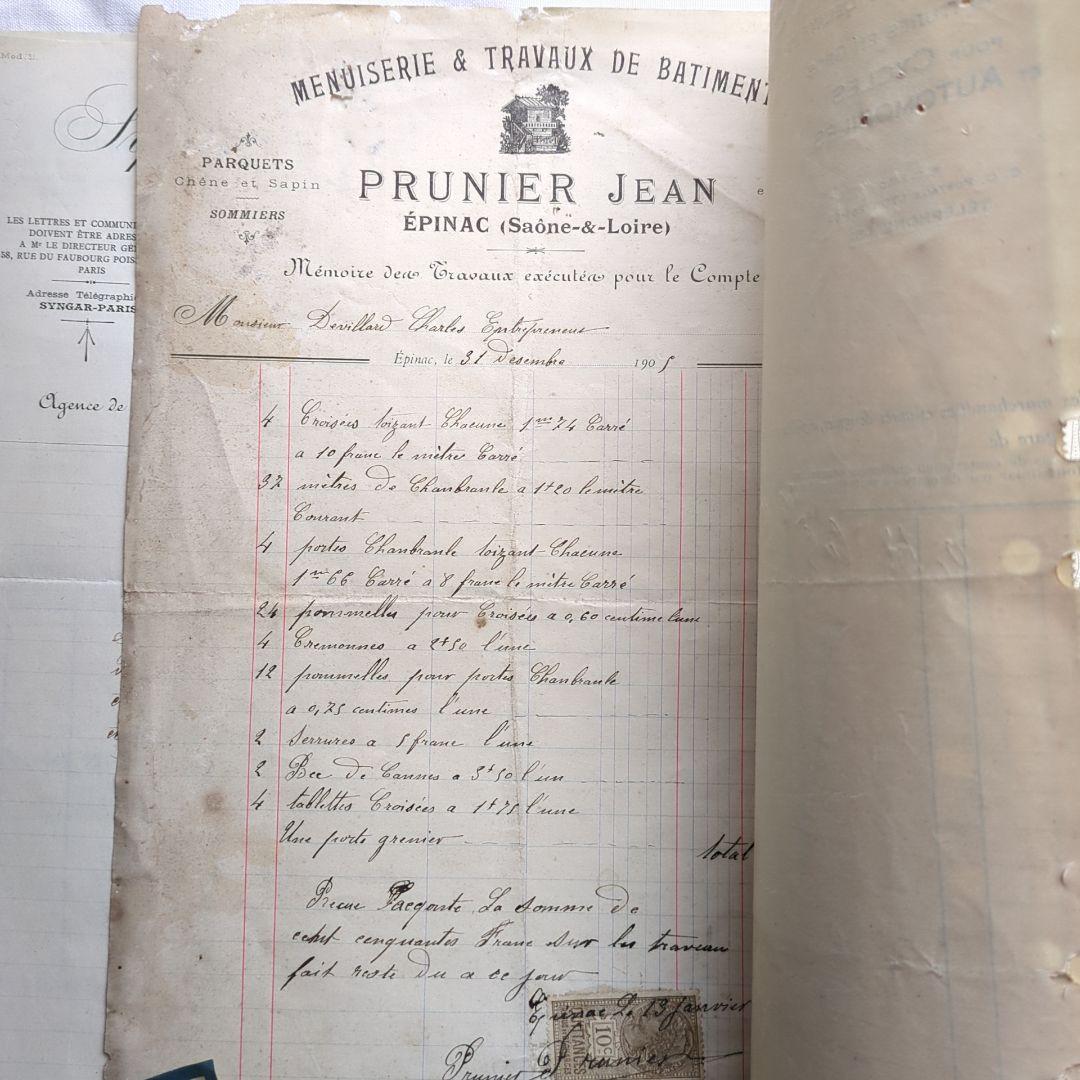 Mod. 
LES LETTRES ET COMMUNI
DOIVENT ÊTRE ADRES
A Mr LE DIRECTEUR GÉ
58, RUE DU FAUBOURG POIS
PARIS
Adresse Télégraphi
SYNGAR-PARIS
Agence de
MENUISERIE & TRAVAUX DE BATIMENT
PARQUETS
Chêne et Sapin
SOMMIERS
PRUNIER JEAN
ÉPINAC (Saône-&-Loire)
Mémoire des Travaux exécutés pour le Compte
Monsieur Devillard Charles Entrepreneur
Épinac, le 31 Desembre 1905
4 Croisées toizant Chacune 1m 74 Carré
a 10 franc le mètre Carré
32 mètres de Chanbranle a 1f20 le mètre
Courant
4 portes Chanbranle toizant Chacune
1m 66 Carré a 8 franc le mètre Carré
24 pommelles pour Croisées a 0,60 centime l'une
4 Cremonnes a 2f50 l'une
12 pommelles pour portes Chanbranle
a 0,75 centimes l'une
2 Serrures a 5 franc l'une
2 Bec de Cannes a 3f50 l'un
4 tablettes Croisées a 1f75 l'une
Une porte grenier
total
Recue La somme de
cent cenquantes Franc sur les traveau
fait reste du a ce jour
Epinac Le 13 Janvier
10c
QUITTANCES
Prunier
Prunier
POUR CYCLES
ET AUTOMOBILES